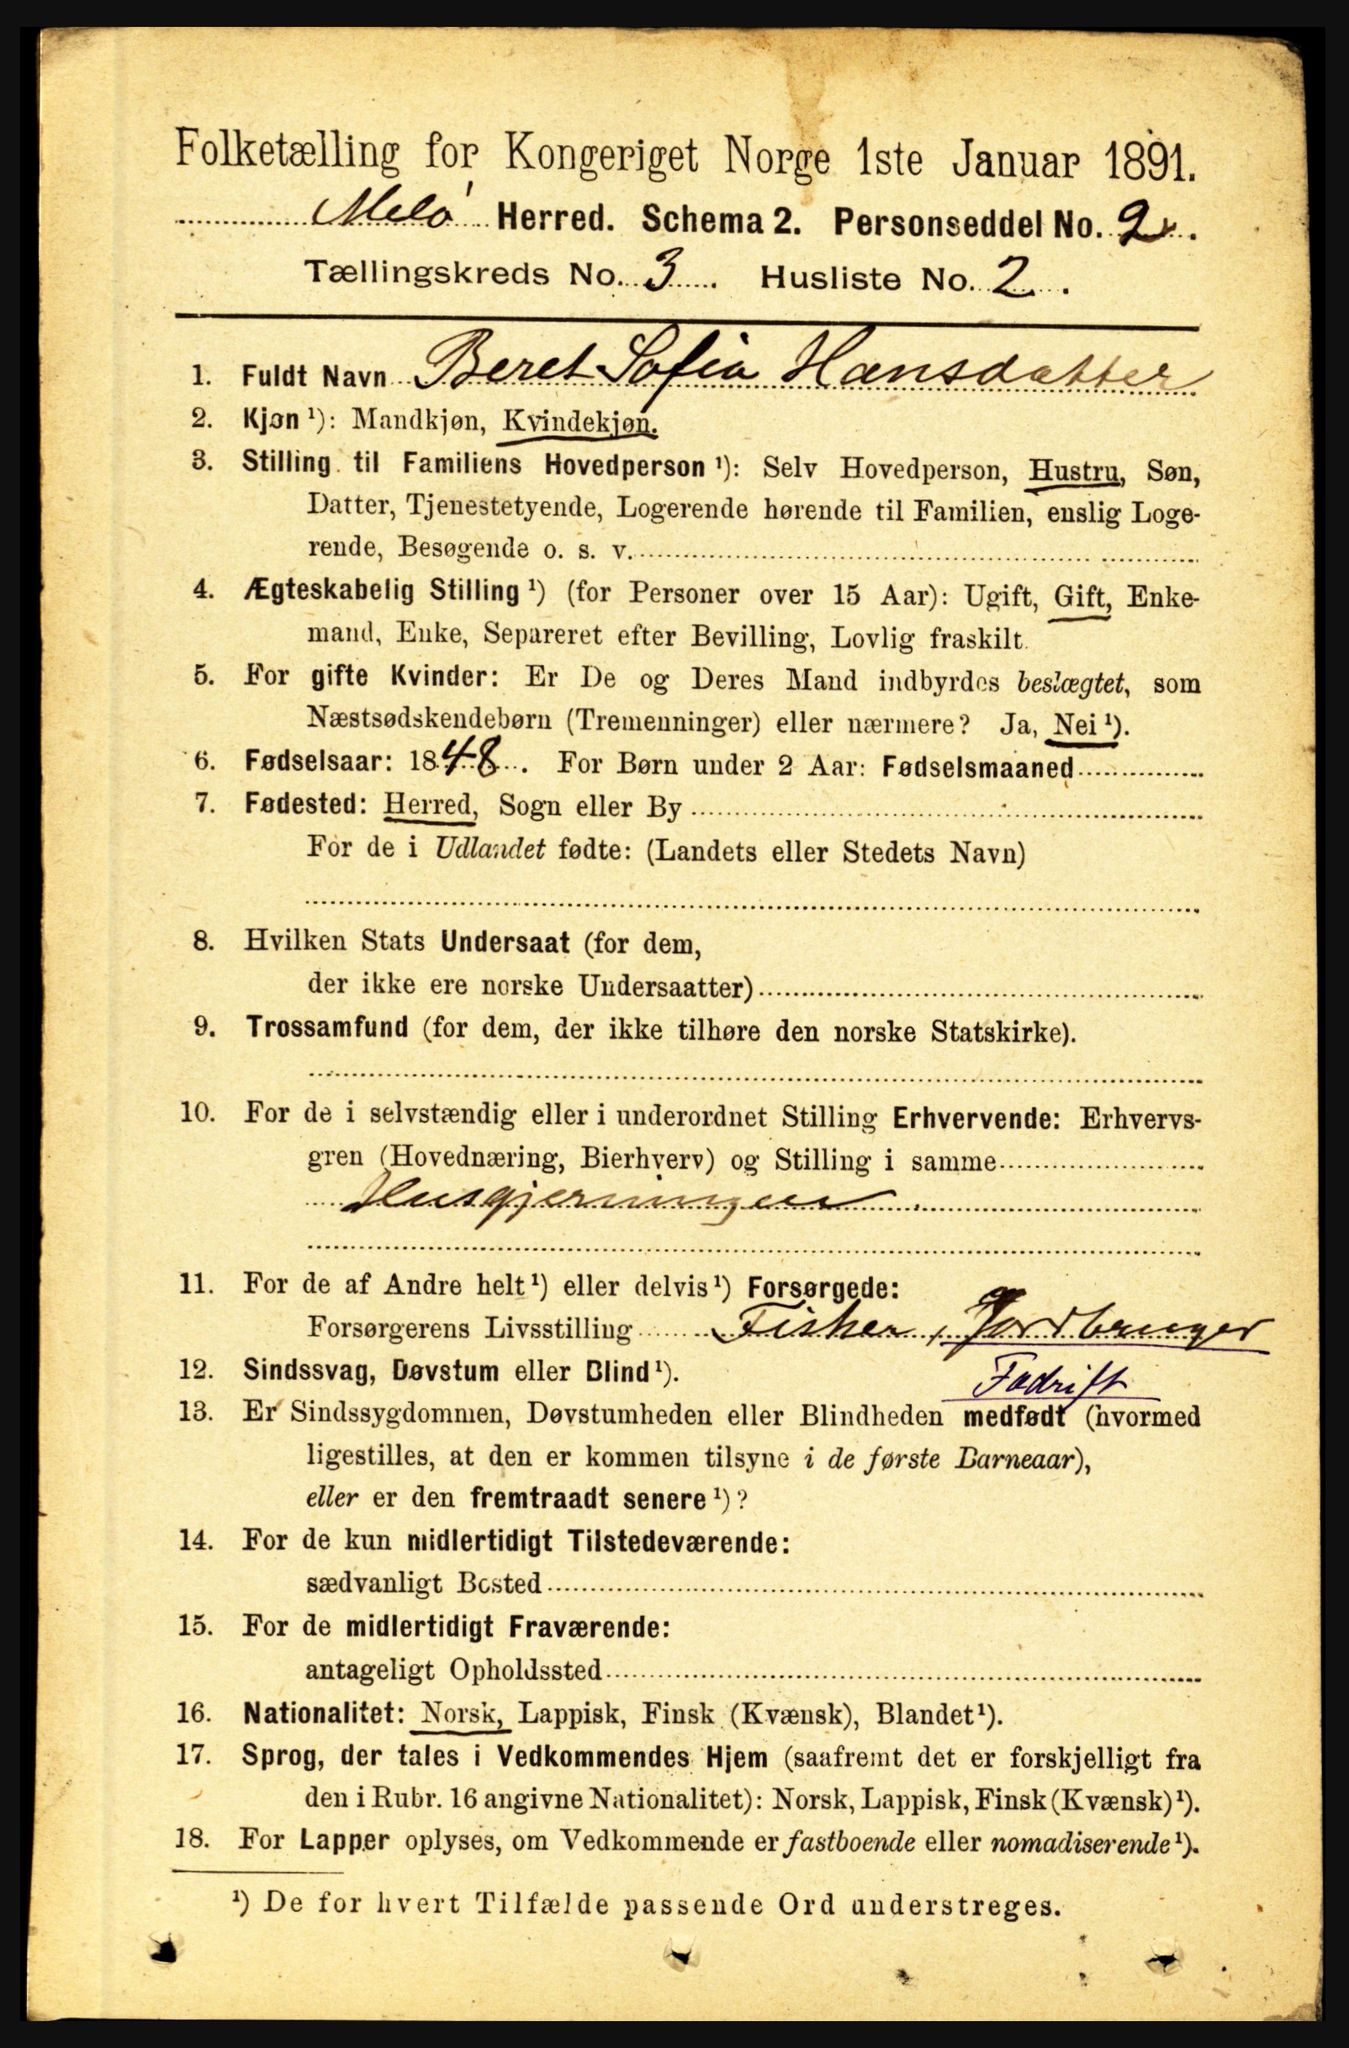 Folketælling for Kongeriget Norge 1ste Januar 1891.
Melø Herred. Schema 2. Personseddel No. 2.
Tællingskreds No. 3. Husliste No. 2.
1. Fuldt Navn Beret Sofia Hansdatter
2. Kjøn ¹): Mandkjøn, Kvindekjøn.
3. Stilling til Familiens Hovedperson ¹): Selv Hovedperson, Hustru, Søn,
Datter, Tjenestetyende, Logerende hørende til Familien, enslig Loge-
rende, Besøgende o. s. v.
4. Ægteskabelig Stilling ¹) (for Personer over 15 Aar): Ugift, Gift, Enke-
mand, Enke, Separeret efter Bevilling, Lovlig fraskilt.
5. For gifte Kvinder: Er De og Deres Mand indbyrdes beslægtet, som
Næstsødskendebørn (Tremenninger) eller nærmere? Ja, Nei ¹).
6. Fødselsaar: 1848. For Børn under 2 Aar: Fødselsmaaned
7. Fødested: Herred, Sogn eller By
For de i Udlandet fødte: (Landets eller Stedets Navn)
8. Hvilken Stats Undersaat (for dem,
der ikke ere norske Undersaatter)
9. Trossamfund (for dem, der ikke tilhøre den norske Statskirke).
10. For de i selvstændig eller i underordnet Stilling Erhvervende: Erhvervs-
gren (Hovednæring, Bierhverv) og Stilling i samme
Husgjerningen.
11. For de af Andre helt ¹) eller delvis ¹) Forsørgede:
Forsørgerens Livsstilling Fisker, Jordbruger
12. Sindssvag, Døvstum eller Blind ¹). Fadrift
13. Er Sindssygdommen, Døvstumheden eller Blindheden medfødt (hvormed
ligestilles, at den er kommen tilsyne i de første Barneaar),
eller er den fremtraadt senere ¹)?
14. For de kun midlertidigt Tilstedeværende:
sædvanligt Bosted
15. For de midlertidigt Fraværende:
antageligt Opholdssted
16. Nationalitet: Norsk, Lappisk, Finsk (Kvænsk), Blandet ¹).
17. Sprog, der tales i Vedkommendes Hjem (saafremt det er forskjelligt fra
den i Rubr. 16 angivne Nationalitet): Norsk, Lappisk, Finsk (Kvænsk) ¹).
18. For Lapper oplyses, om Vedkommende er fastboende eller nomadiserende ¹).
¹) De for hvert Tilfælde passende Ord understreges.